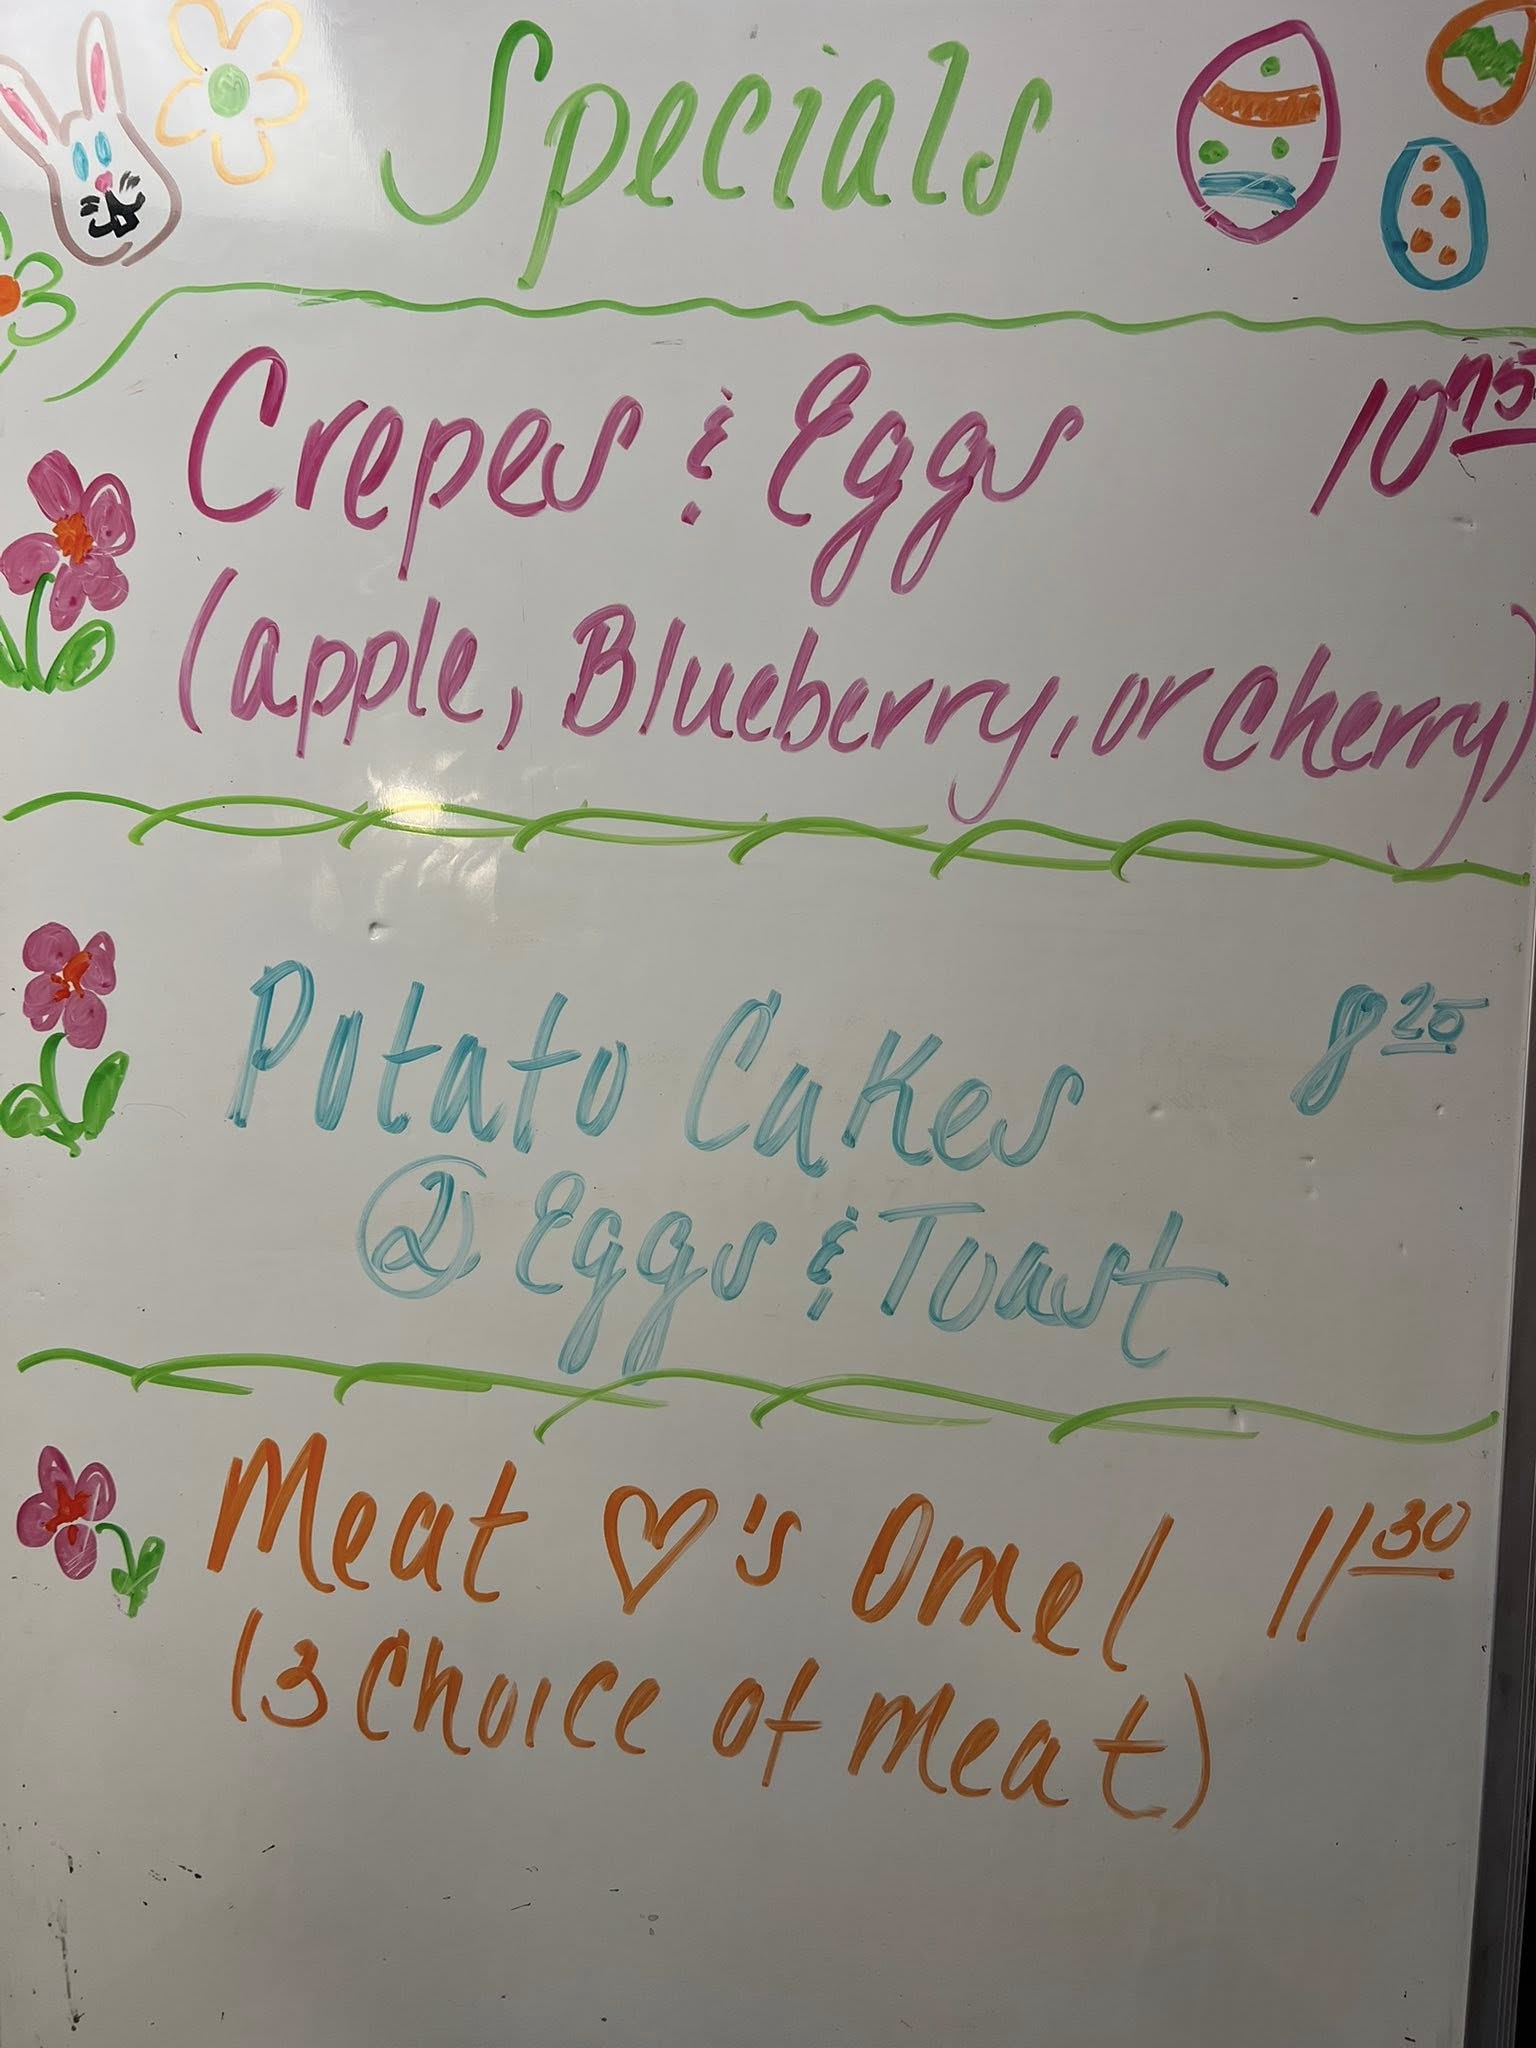 Specials
Crepes & Eggs 10.75
(apple, Blueberry, or Cherry)
Potato Cakes 8.25
2 Eggs & Toast
Meat ♡'s Omel 11.30
(3 Choice of Meat)